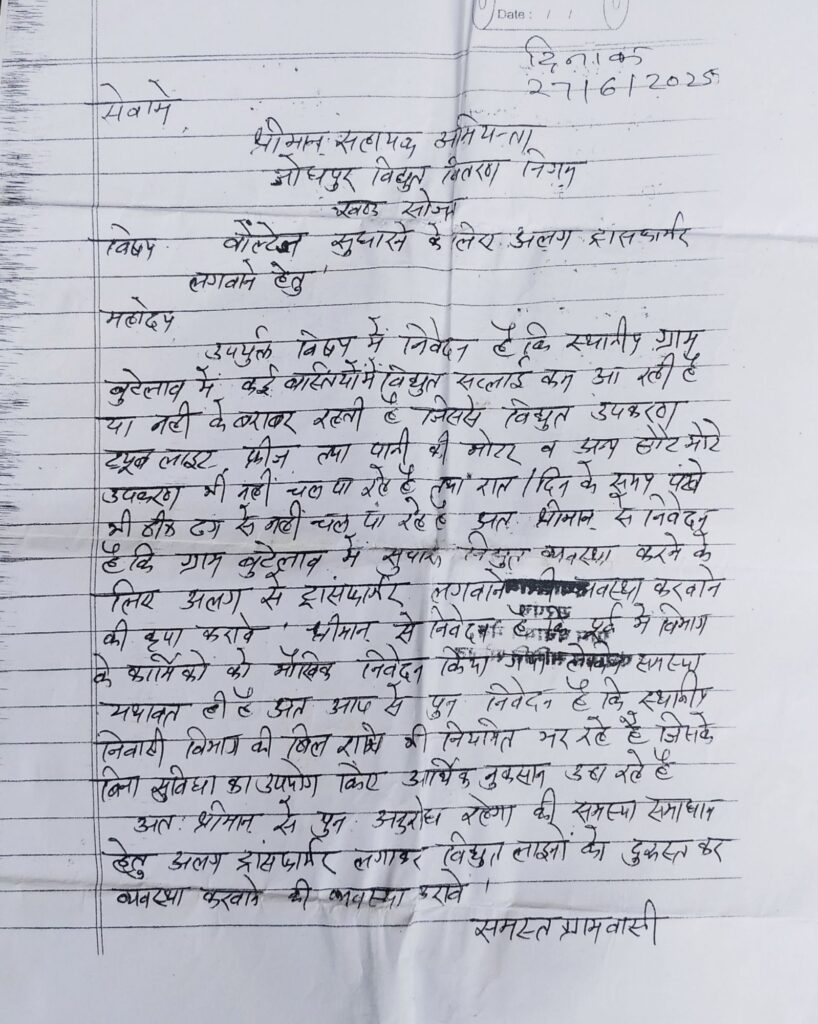 Date : / /
दिनांक
27/6/2025
सेवामे
श्रीमान् सहायक अभियन्ता
जोधपुर विद्युत वितरण निगम
खण्ड सोजत
विषय वौल्टेज सुधारने के लिए अलग ट्रासफार्मर
लगवाने हेतु
महोदय
उपर्युक्त विषय में निवेदन है कि स्थानीय ग्राम
बुटेलाव में कई बस्तियों में विद्युत सप्लाई कम आ रही है
या नही के बराबर रहती है जिससे विद्युत उपकरण
ट्यूब लाइट फ्रीज तथा पानी की मोटर व अन्य छोटे मोटे
उपकरण भी नही चल पा रहे है तथा रात / दिन के समय पंखे
भी ठीक ढग से नही चल पा रहे है अत श्रीमान् से निवेदन
है कि ग्राम बुटेलाव में सुचारू विद्युत व्यवस्था करने के
लिए अलग से ट्रांसफार्मर लगवाने व्यवस्था करवाने
की कृपा करावे । श्रीमान् से निवेदन है कि पूर्व मे विभाग
के कार्मिको को मौखिक निवेदन किया समस्या
यथावत ही है अत आप से पुन निवेदन है कि स्थानीय
निवासी विभाग की बिल राशि भी नियमित भर रहे है जिसके
बिना सुविधा का उपयोग किए आर्थिक नुकसान उठा रहे है
अत: श्रीमान् से पुन अनुरोध रहेगा की समस्या समाधान
हेतु अलग ट्रांसफार्मर लगाकर विद्युत लाइनो को दुरूस्त कर
व्यवस्था करवाने की व्यवस्था करावे ।
समस्त ग्रामवासी